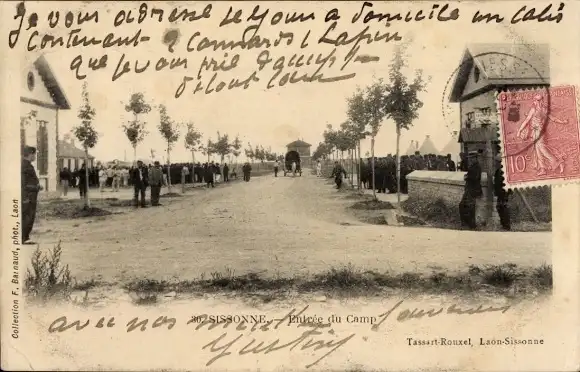 Je vous adresse ce jour a domicile un colis
contenant 2 Cannards 1 Lapin
que je vous prie d'accepter
de tout cœur
SISSONNE. — Entrée du Camp
avec nos meilleurs souvenirs
Collection F. Barnaud, phot., Laon
10
Tassart-Rouxel, Laon-Sissonne